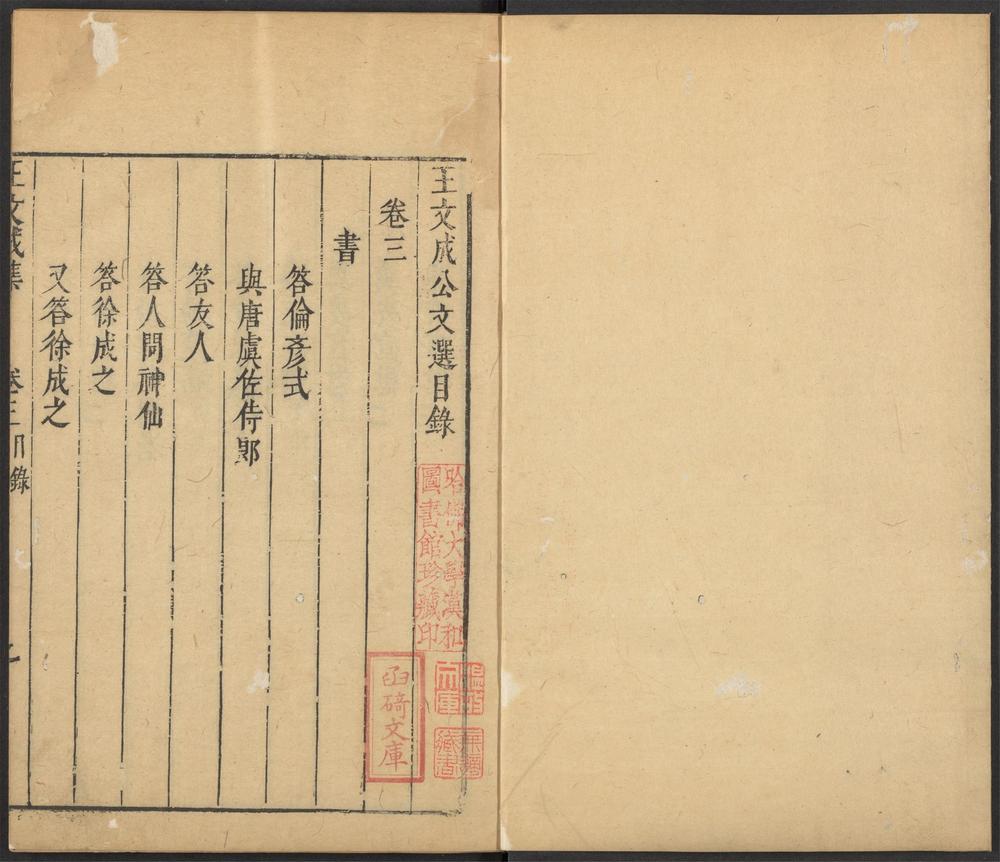 王文成公文選目錄
卷三
書
答倫彥式
與唐虞佐侍郎
答友人
答人問神仙
答徐成之
又答徐成之
王文成集 卷三目錄
哈佛大學漢和
圖書館珍藏印
文庫
藏書